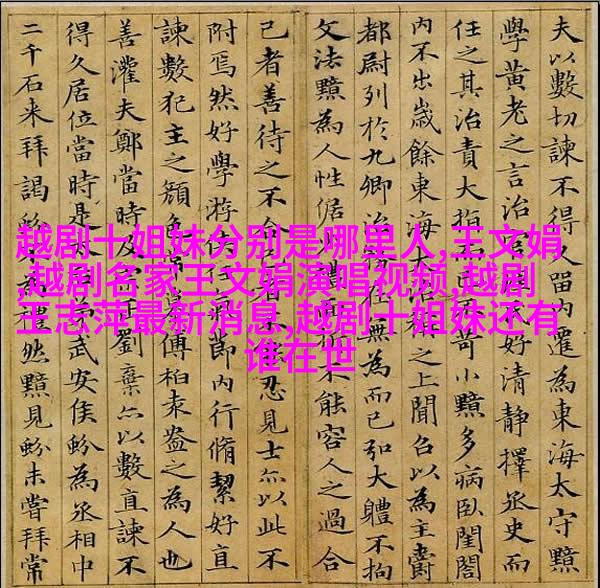 夫以數切諫不得久留內遷為東海太守黯
學黃老之言治官好清靜擇丞史而
任之其治責大指苛小黯多病臥閨閤
內不出歲餘東海之上聞召以為主爵
都尉列於九卿治在無為而已弘大體不拘
文法黯為人性倨不能容人之過合
己者善待之不合忍見士亦以此不
附焉然好學游節內行脩絜好直
諫數犯主之顏色傅柏袁盎之為人也
善灌夫鄭當時及劉棄亦以數直諫不
得久居位當時是武安侯蚡為丞相中
二千石来拜謁禮然黯見蚡未嘗拜常
越剧十姐妹分别是哪里人,王文娟
,越剧名家王文娟演唱视频,越剧
王志萍最新消息,越剧十姐妹还有
谁在世